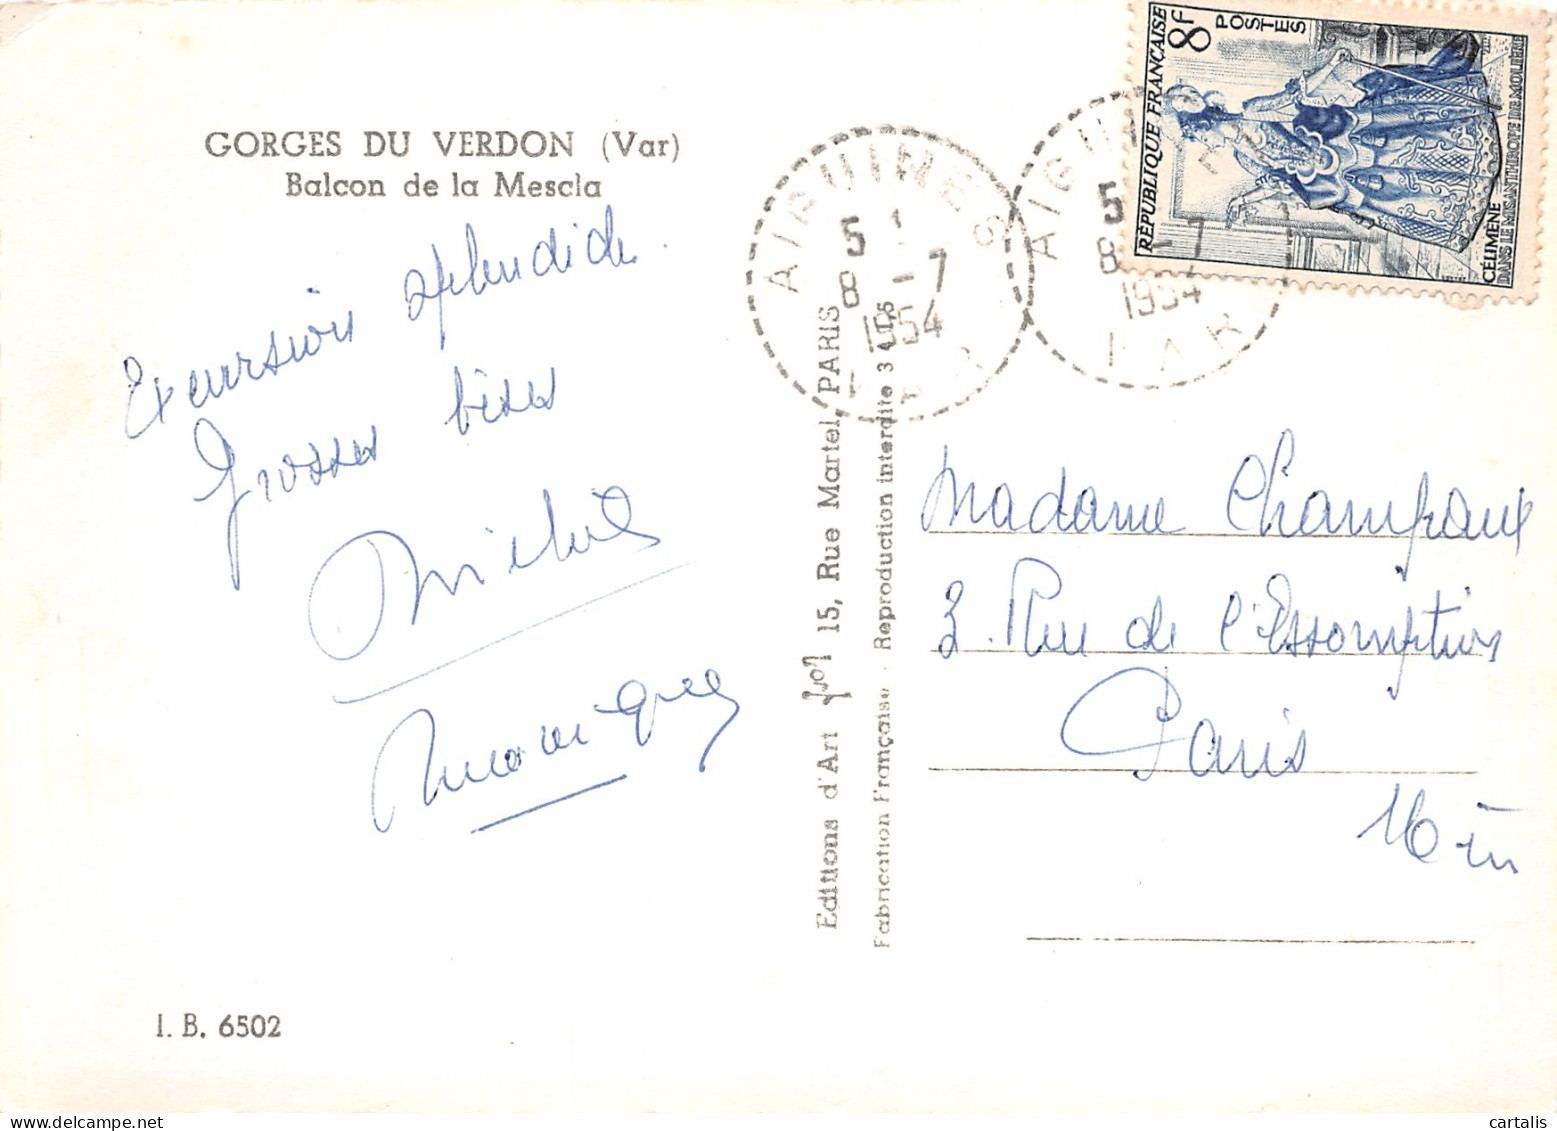 GORGES DU VERDON (Var)
Balcon de la Mescla
Excursion splendide.
Grosses bises
Michel
Monique
I. B. 6502
Editions d'Art Yvon 15, Rue Martel, PARIS
Fabrication Française - Reproduction interdite
AIGUINES
5
8 - 7
1954
VAR
AIGUINES
5
8 - 7
1954
VAR
RÉPUBLIQUE FRANÇAISE
8F
POSTES
CÉLIMÈNE
DANS LE MISANTHROPE DE MOLIÈRE
Madame Champaux
3 Rue de l'Assomption
Paris
16 èm
cartalis